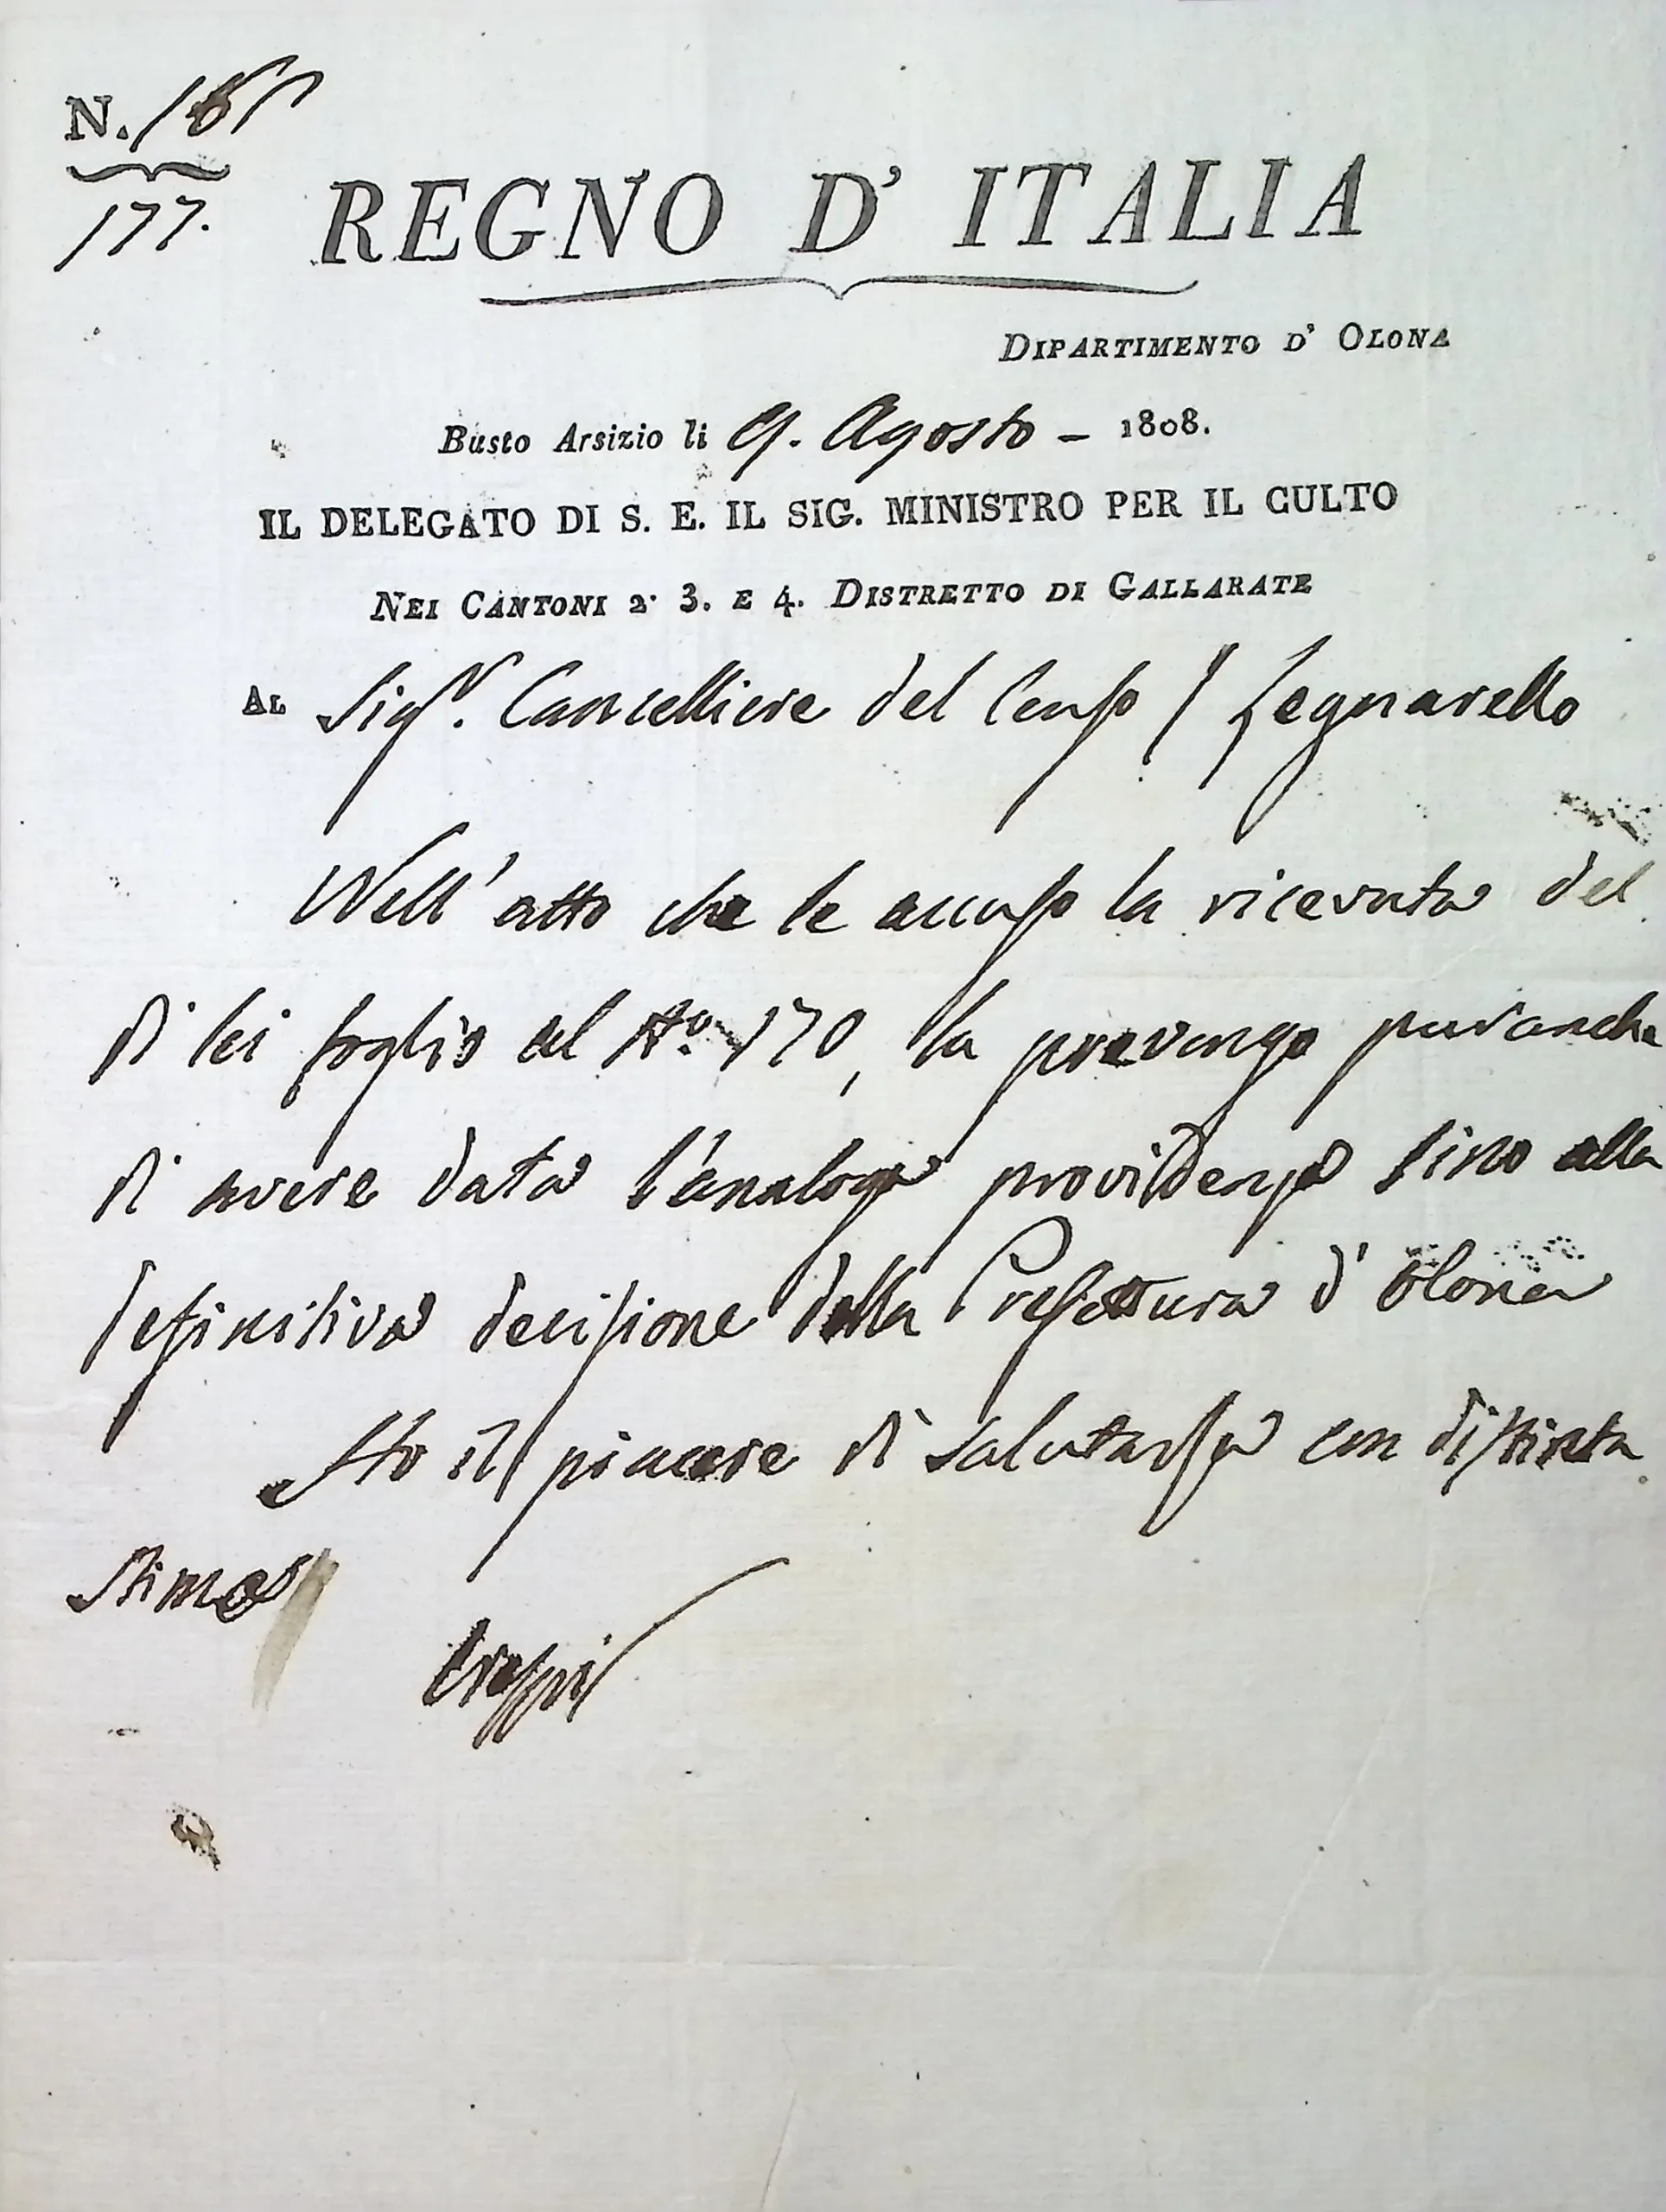 N.
177.
REGNO D' ITALIA
DIPARTIMENTO D' OLONA
Busto Arsizio li 9. Agosto - 1808.
IL DELEGATO DI S. E. IL SIG. MINISTRO PER IL CULTO
NEI CANTONI 2. 3. E 4. DISTRETTO DI GALLARATE
AL Sigr. Cancelliere del Censo / Legnarello
Nell' atto che le accuso la ricevuta del
di lei foglio al No. 170, la prevengo puranche
di avere data l'analoga providenza sino alla
definitiva decisione della Prefettura d' Olona
Ho il piacere di salutarla con distinta
stima
Crespi